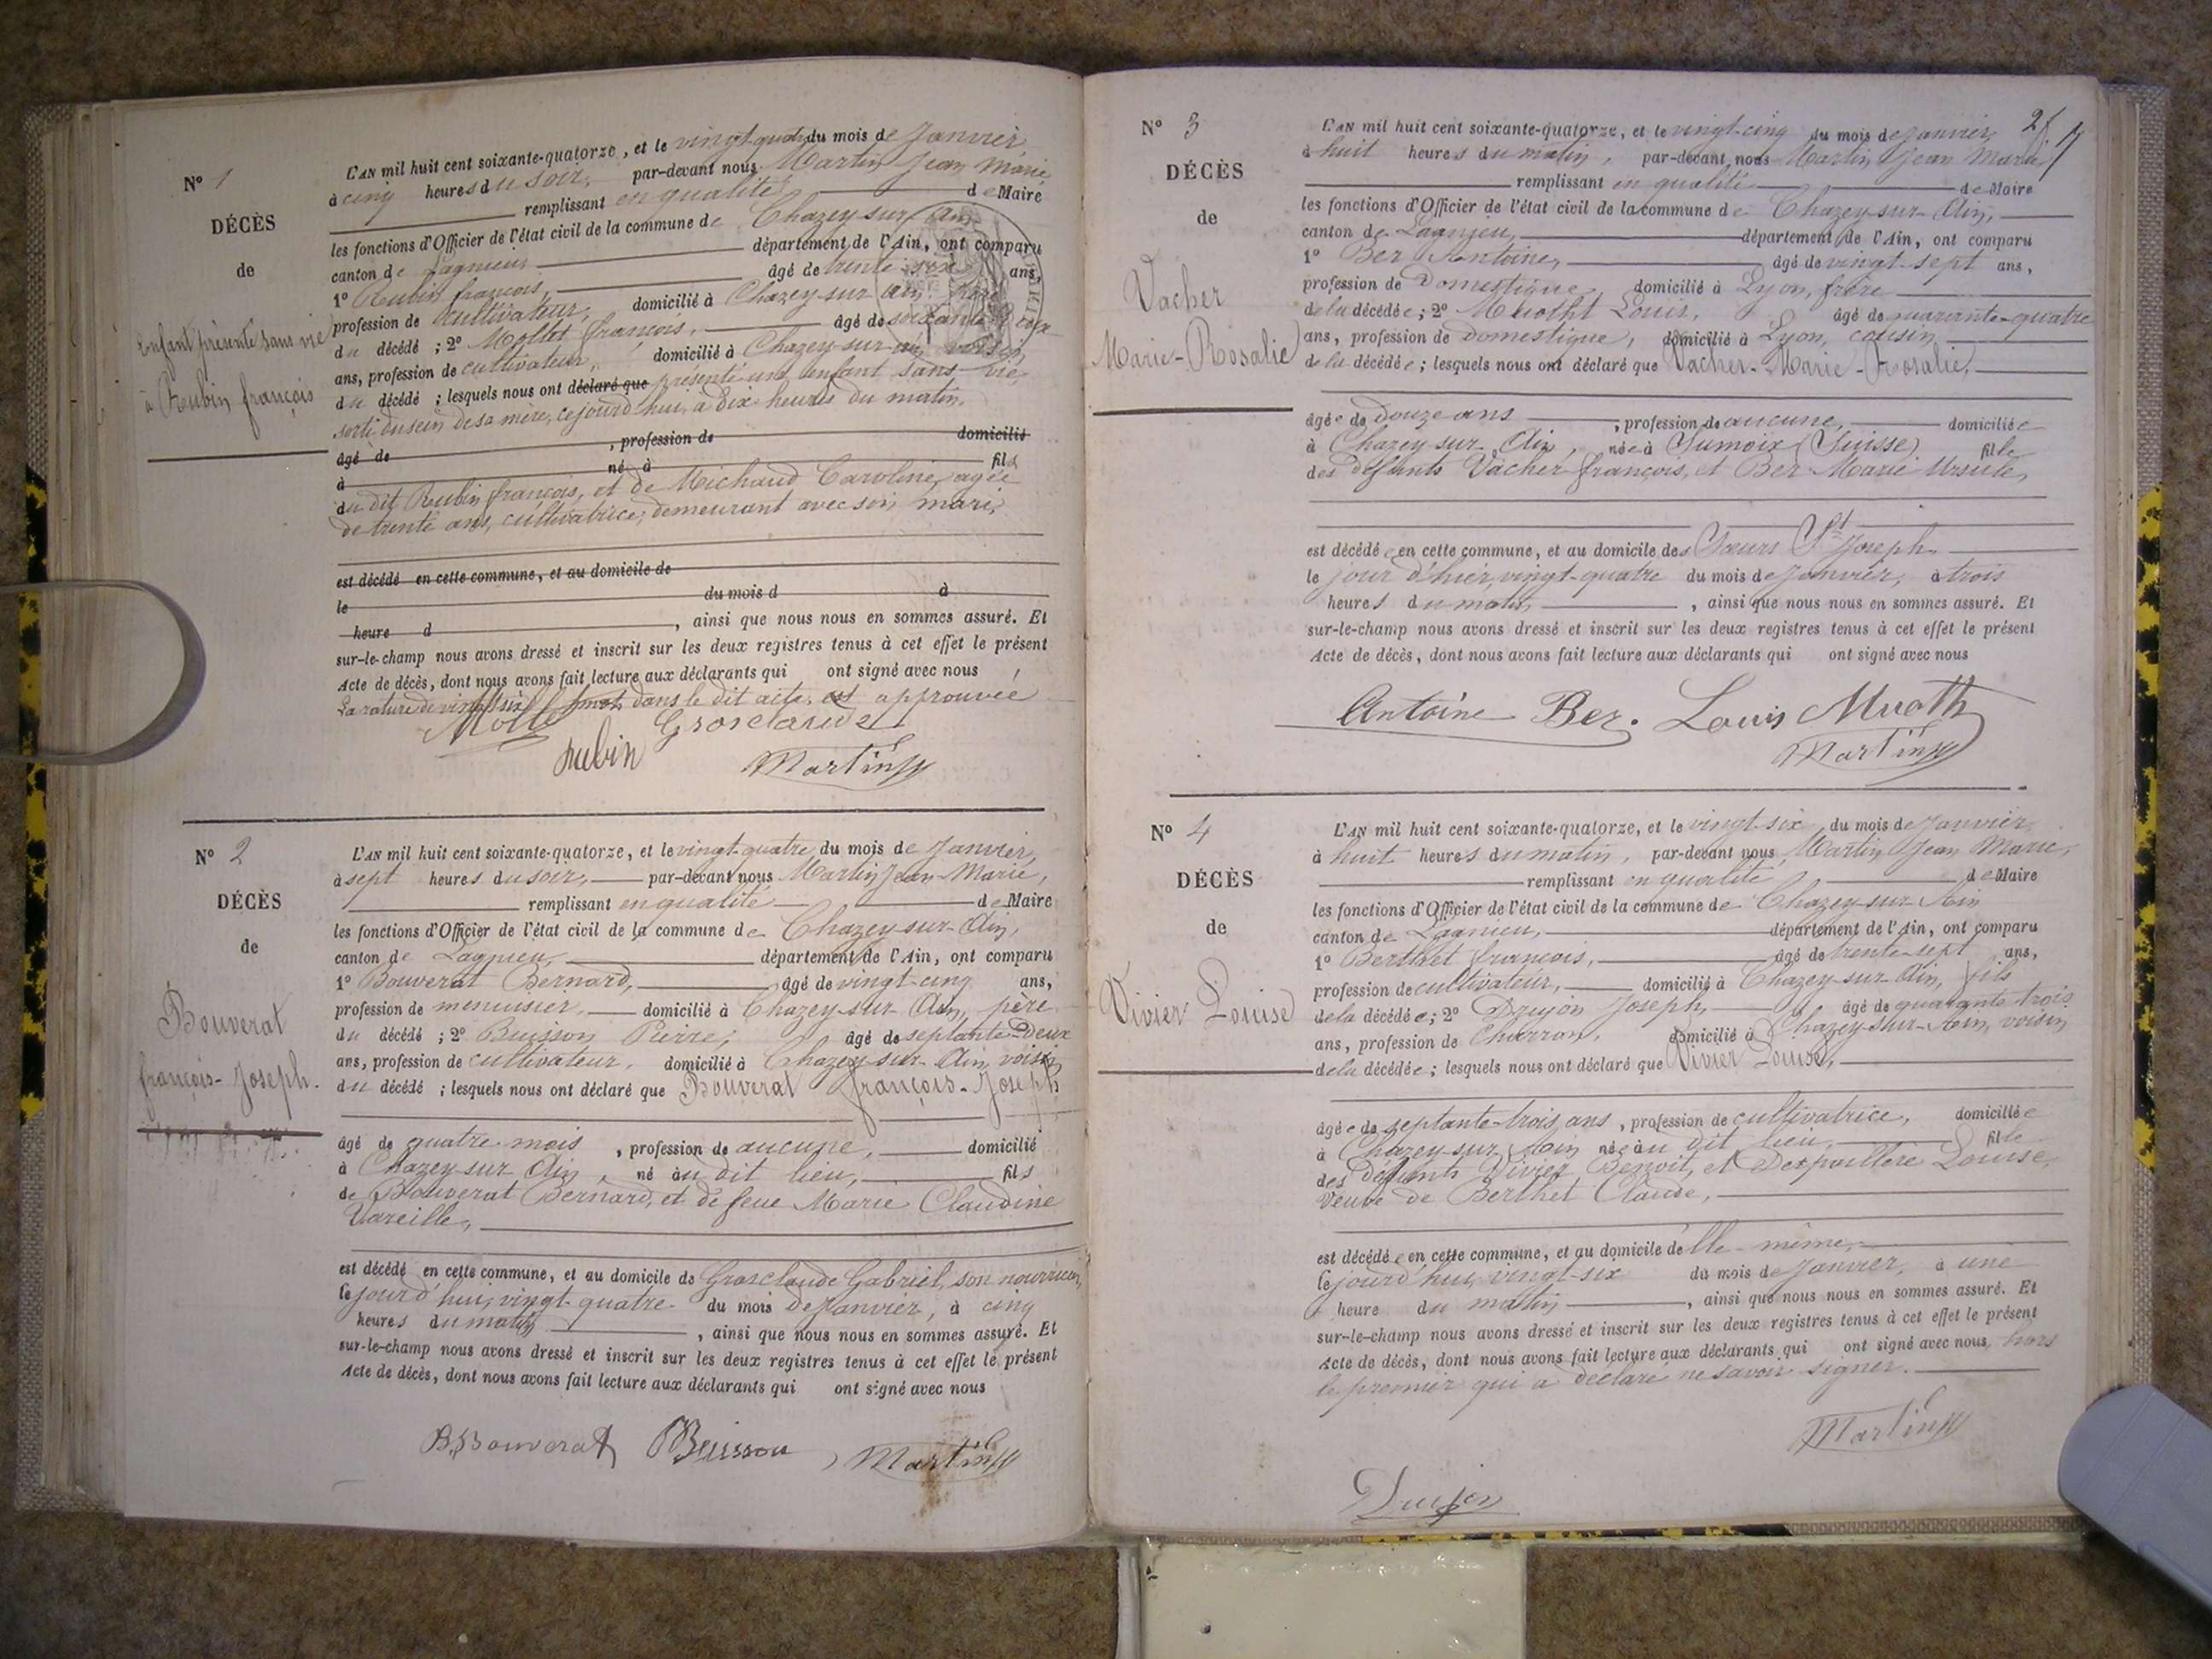 N° 1
DÉCÈS
de
Enfant présenté sans vie
à Rubin françois
L'AN mil huit cent soixante-quatorze, et le vingt quatre du mois de Janvier
à cinq heures du soir, par-devant nous Martin Jean Marie
remplissant en qualité de Maire
les fonctions d'Officier de l'état civil de la commune de Chazey-sur-Ain
canton de Lagnieu département de l'Ain, ont comparu
1° Rubin françois, âgé de trente six ans,
profession de cultivateur, domicilié à Chazey-sur-Ain, père
du décédé ; 2° Mollet françois, âgé de soixante
ans, profession de cultivateur, domicilié à Chazey-sur-Ain, voisin
du décédé ; lesquels nous ont déclaré que présenté un enfant sans vie
sorti du sein de sa mère, ce jourd'hui, à dix heures du matin.
âgé de , profession de domicilié
à né à fils
du dit Rubin françois, et de Michaud Caroline, agée
de trente ans, cultivatrice, demeurant avec son mari,
est décédé en cette commune, et au domicile de
le du mois d à
heure d , ainsi que nous nous en sommes assuré. Et
sur-le-champ nous avons dressé et inscrit sur les deux registres tenus à cet effet le présent
Acte de décès, dont nous avons fait lecture aux déclarants qui ont signé avec nous
La rature de vingt six mots dans le dit acte, est approuvée
Mollet Grosclaude
Rubin Martin
N° 2
DÉCÈS
de
Bouverat
françois-Joseph.
L'AN mil huit cent soixante-quatorze, et le vingt-quatre du mois de Janvier,
à sept heures du soir, par-devant nous Martin Jean-Marie,
remplissant en qualité de Maire
les fonctions d'Officier de l'état civil de la commune de Chazey-sur-Ain,
canton de Lagnieu, département de l'Ain, ont comparu
1° Bouverat Bernard, âgé de vingt-cinq ans,
profession de menuisier, domicilié à Chazey-sur-Ain, père
du décédé ; 2° Buisson Pierre, âgé de septante-deux
ans, profession de cultivateur, domicilié à Chazey-sur-Ain, voisin
du décédé ; lesquels nous ont déclaré que Bouverat françois-Joseph
âgé de quatre mois , profession de aucune, domicilié
à Chazey-sur-Ain, né au dit lieu, fils
de Bouverat Bernard, et de feue Marie Claudine
Vareille,
est décédé en cette commune, et au domicile de Grosclaude Gabriel, son nourricier,
le jourd'hui, vingt-quatre du mois de Janvier, à cinq
heures du matin , ainsi que nous nous en sommes assuré. Et
sur-le-champ nous avons dressé et inscrit sur les deux registres tenus à cet effet le présent
Acte de décès, dont nous avons fait lecture aux déclarants qui ont signé avec nous
B. Bouverat Buisson Martin
N° 3
DÉCÈS
de
Vacher
Marie-Rosalie
L'AN mil huit cent soixante-quatorze, et le vingt-cinq du mois de Janvier,
à huit heures du matin, par-devant nous Martin Jean Marie,
remplissant en qualité de Maire
les fonctions d'Officier de l'état civil de la commune de Chazey-sur-Ain,
canton de Lagnieu, département de l'Ain, ont comparu
1° Ber Antoine, âgé de vingt-sept ans,
profession de Domestique, domicilié à Lyon, frère
de la décédée; 2° Muotht Louis, âgé de quarante-quatre
ans, profession de domestique, domicilié à Lyon, cousin
de la décédée; lesquels nous ont déclaré que Vacher-Marie-Rosalie,
âgée de douze ans , profession de aucune, domiciliée
à Chazey-sur-Ain, née à Sumoix (Suisse) fille
des défunts Vacher françois, et Ber Marie Ursule,
est décédée en cette commune, et au domicile des Sœurs St Joseph
le jour d'hier, vingt-quatre du mois de Janvier, à trois
heures du matin , ainsi que nous nous en sommes assuré. Et
sur-le-champ nous avons dressé et inscrit sur les deux registres tenus à cet effet le présent
Acte de décès, dont nous avons fait lecture aux déclarants qui ont signé avec nous
Antoine Ber. Louis Muoth
Martin
N° 4
DÉCÈS
de
Vivier Louise
L'AN mil huit cent soixante-quatorze, et le vingt-six du mois de Janvier,
à huit heures du matin, par-devant nous Martin Jean Marie,
remplissant en qualité de Maire
les fonctions d'Officier de l'état civil de la commune de Chazey-sur-Ain
canton de Lagnieu, département de l'Ain, ont comparu
1° Berthet françois, âgé de trente-sept ans,
profession de cultivateur, domicilié à Chazey-sur-Ain, fils
de la décédée; 2° Drujon Joseph, âgé de quarante trois
ans, profession de Charron, domicilié à Chazey-sur-Ain, voisin
de la décédée; lesquels nous ont déclaré que Vivier Louise,
âgée de septante-trois ans, profession de cultivatrice, domiciliée
à Chazey-sur-Ain née au dit lieu, fille
des défunts Vivier Benoit, et Louise,
Veuve de Berthet Claude,
est décédée en cette commune, et au domicile d'elle-même,
le jourd'hui, vingt-six du mois de Janvier, à une
heure du matin , ainsi que nous nous en sommes assuré. Et
sur-le-champ nous avons dressé et inscrit sur les deux registres tenus à cet effet le présent
Acte de décès, dont nous avons fait lecture aux déclarants qui ont signé avec nous, hors
le premier qui a déclaré ne savoir signer.
Martin
Drujon